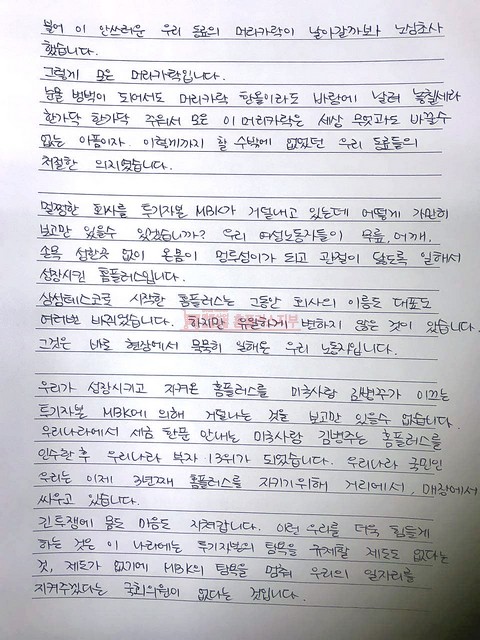 불어 이 안쓰러운 우리 동료의 머리카락이 날아갈까봐 노심초사
했습니다.
그렇게 모은 머리카락입니다.
눈물 범벅이 되어서도 머리카락 한올이라도 바람에 날려 놓칠세라
한가닥 한가닥 주워서 모은 이 머리카락은 세상 무엇과도 바꿀수
없는 아픔이자. 이렇게까지 할 수밖에 없었던 우리 동료들의
처절한 의지였습니다.
멀쩡한 회사를 투기자본 MBK가 거덜내고 있는데 어떻게 가만히
보고만 있을수 있겠습니까? 우리 여성노동자들이 무릎, 어깨,
손목 성한곳 없이 온몸이 멍투성이가 되고 관절이 닳도록 일해서
성장시킨 홈플러스입니다.
삼성테스코로 시작한 홈플러스는 그동안 회사의 이름도 대표도
여러번 바뀌었습니다. 하지만 유일하게 변하지 않은 것이 있습니다.
그것은 바로 현장에서 묵묵히 일해온 우리 노동자입니다.
우리가 성장시키고 지켜온 홈플러스를 미국사람 김병주가 이끄는
투기자본 MBK에 의해 거덜나는 것을 보고만 있을수 없습니다.
우리나라에서 세금 한푼 안내는 미국사람 김병주는 홈플러스를
인수한 후 우리나라 부자 13위가 되었습니다. 우리나라 국민인
우리는 이제 3년째 홈플러스를 지키기위해 거리에서, 매장에서
싸우고 있습니다.
긴 투쟁에 몸도 마음도 지쳐갑니다. 이런 우리를 더욱 힘들게
하는 것은 이 나라에는 투기자본의 탐욕을 규제할 제도도 없다는
것, 제도가 없기에 MBK의 탐욕을 멈춰 우리의 일자리를
지켜주겠다는 국회의원이 없다는 것입니다.